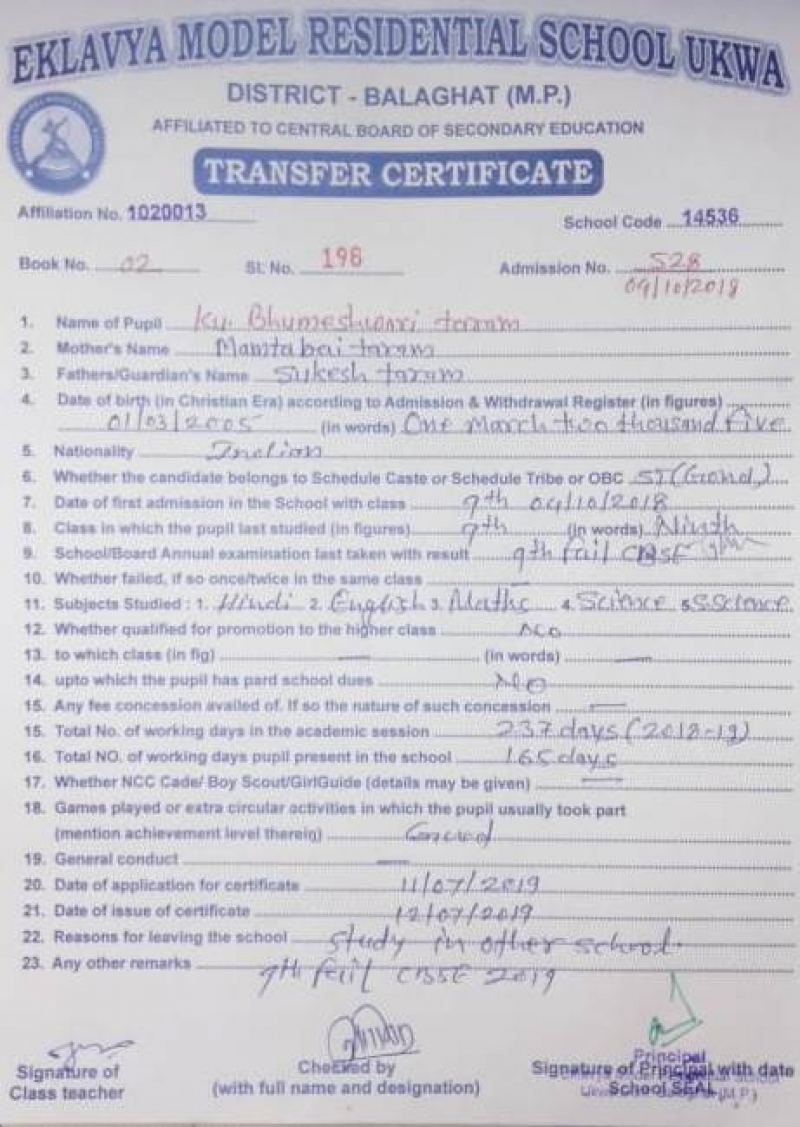 EKLAVYA MODEL RESIDENTIAL SCHOOL UKWA
DISTRICT - BALAGHAT (M.P.)
AFFILIATED TO CENTRAL BOARD OF SECONDARY EDUCATION
TRANSFER CERTIFICATE
Affiliation No. 1020013 School Code 14536
Book No. 02 Sl. No. 196 Admission No. 528
09/10/2018
1. Name of Pupil Ku. Bhumeshwari taram
2. Mother's Name Mamta bai taram
3. Fathers/Guardian's Name Sukesh taram
4. Date of birth (in Christian Era) according to Admission & Withdrawal Register (in figures)
01/03/2005 (in words) One March two thousand Five
5. Nationality Indian
6. Whether the candidate belongs to Schedule Caste or Schedule Tribe or OBC ST (Gond)
7. Date of first admission in the School with class 9th 09/10/2018
8. Class in which the pupil last studied (in figures) 9th (in words) Ninth
9. School/Board Annual examination last taken with result 9th fail CBSE
10. Whether failed, if so once/twice in the same class —
11. Subjects Studied : 1. Hindi 2. English 3. Maths 4. Science 5. S.Science
12. Whether qualified for promotion to the higher class No
13. to which class (in fig) — (in words) —
14. upto which the pupil has pard school dues No
15. Any fee concession availed of. If so the nature of such concession —
15. Total No. of working days in the academic session 237 days (2018-19)
16. Total NO. of working days pupil present in the school 165 days
17. Whether NCC Cade/ Boy Scout/GirlGuide (details may be given) —
18. Games played or extra circular activities in which the pupil usually took part
(mention achievement level therein)
19. General conduct —
20. Date of application for certificate 11/07/2019
21. Date of issue of certificate 12/07/2019
22. Reasons for leaving the school study in other school.
23. Any other remarks 9th fail CBSE 2019
Signature of Checked by Signature of Principal with date
Class teacher (with full name and designation) School SEAL
Principal